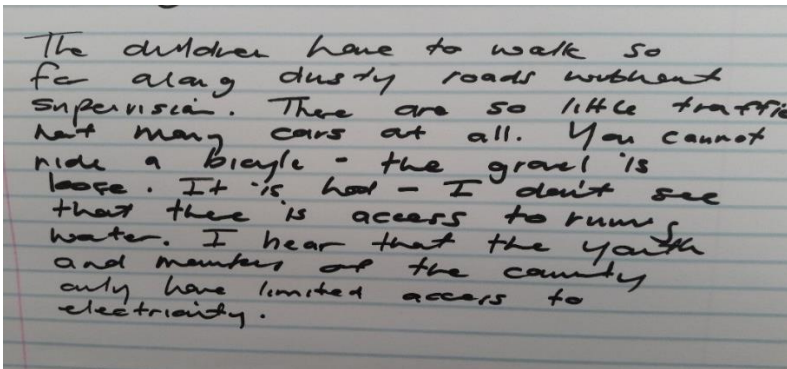 The children have to walk so
far along dusty roads without
supervision. There are so little traffic
not many cars at all. You cannot
ride a bicycle - the gravel is
loose. It is hot - I don't see
that there is access to running
water. I hear that the youth
and members of the
only have limited access to
electricity.